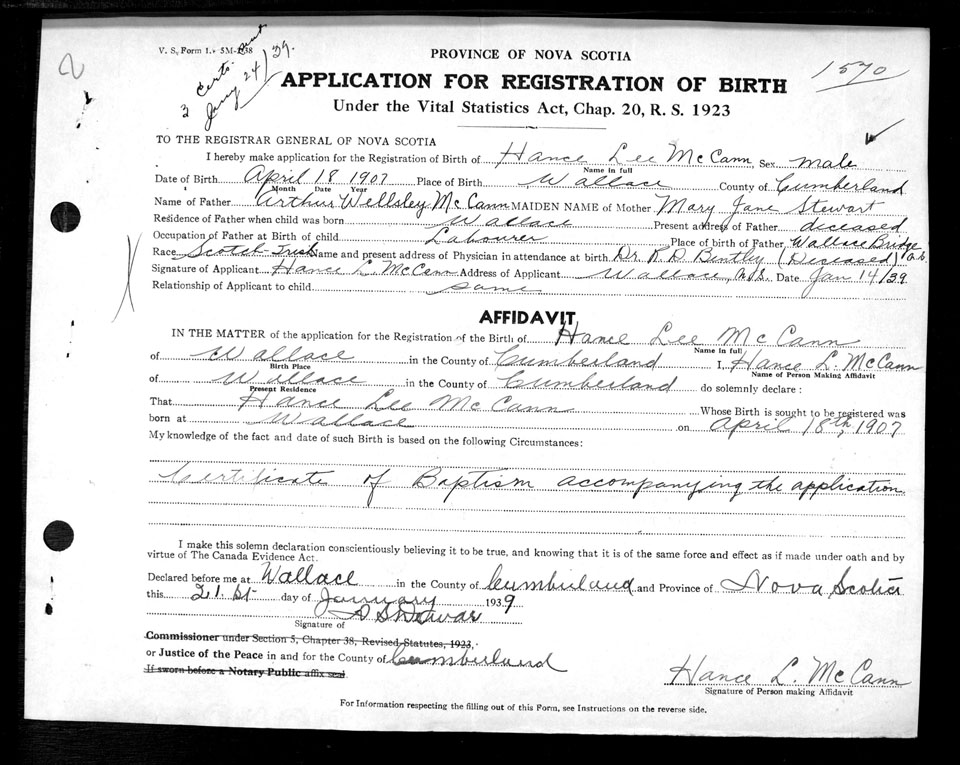 2
V. S. Form 1. 5M- 38
3 Certs. sent
Jany 24/39.
PROVINCE OF NOVA SCOTIA
1570
APPLICATION FOR REGISTRATION OF BIRTH
Under the Vital Statistics Act, Chap. 20, R. S. 1923
TO THE REGISTRAR GENERAL OF NOVA SCOTIA
I hereby make application for the Registration of Birth of Hance Lee McCann, Sex male
Name in full
Date of Birth April 18 1907 Place of Birth Wallace County of Cumberland
Month Date Year
Name of Father Arthur Wellsley McCann MAIDEN NAME of Mother Mary Jane Stewart
Residence of Father when child was born Wallace Present address of Father deceased
Occupation of Father at Birth of child Labourer Place of birth of Father Wallace Bridge
Race Scotch Irish Name and present address of Physician in attendance at birth Dr. R D Bentley (Deceased)
Signature of Applicant Hance L. McCann Address of Applicant Wallace, N.S. Date Jan 14/39
Relationship of Applicant to child same
AFFIDAVIT
IN THE MATTER of the application for the Registration of the Birth of Hance Lee McCann
Name in full
of Wallace in the County of Cumberland I, Hance L. McCann
Birth Place Name of Person Making Affidavit
of Wallace in the County of Cumberland do solemnly declare:
Present Residence
That Hance Lee McCann Whose Birth is sought to be registered was
born at Wallace on April 18th, 1907
My knowledge of the fact and date of such Birth is based on the following Circumstances:
Certificate of Baptism accompanying the application.
I make this solemn declaration conscientiously believing it to be true, and knowing that it is of the same force and effect as if made under oath and by
virtue of The Canada Evidence Act.
Declared before me at Wallace in the County of Cumberland and Province of Nova Scotia
this 21st day of January 1939
D S Dewar
Signature of
Commissioner under Section 5, Chapter 38, Revised Statutes, 1923,
or Justice of the Peace in and for the County of Cumberland
If sworn before a Notary Public affix seal.
Hance L. McCann
Signature of Person making Affidavit
For Information respecting the filling out of this Form, see Instructions on the reverse side.